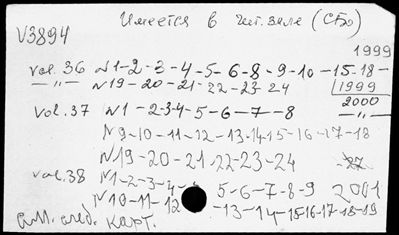 Имеется в чит. зале (СБО)
V3894
1999
vol. 36 N1-2-3-4-5-6-8-9-10-15-18-
—„— N19-20-21-22-23-24 1999
vol. 37 N1-2-3-4-5-6-7-8 2000 —„—
N9-10-11-12-13-14-15-16-17-18
N19-20-21-22-23-24 -27-
vol. 38 N1-2-3-4- 5-6-7-8-9 2001
N10-11-12 -13-14-15-16-17-18-19
см. след. карт.